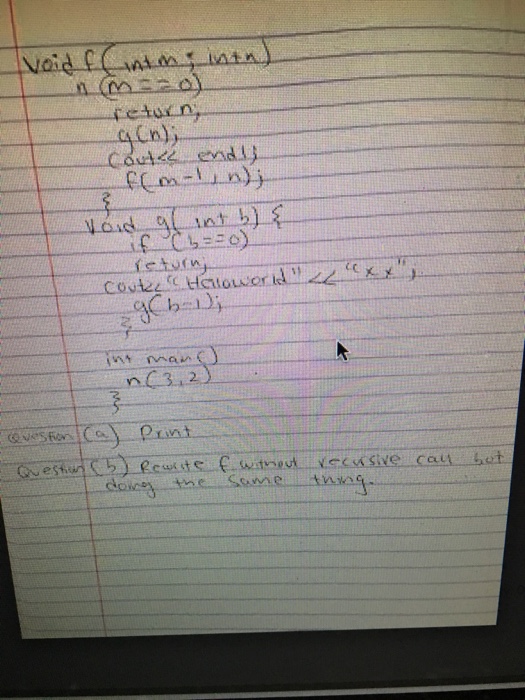 Void f( int m ; int n)
n (m == 0)
return;
g(n);
Cout<< endl;
f(m-1, n);
}
Void g( int b) {
if (b==0)
return;
cout<< " Halloworld" << "xx";
g(b-1);
}
int man()
n(3,2)
}
Question (a) Print
Question (b) Rewrite f without recusive call but
doing the same thing.